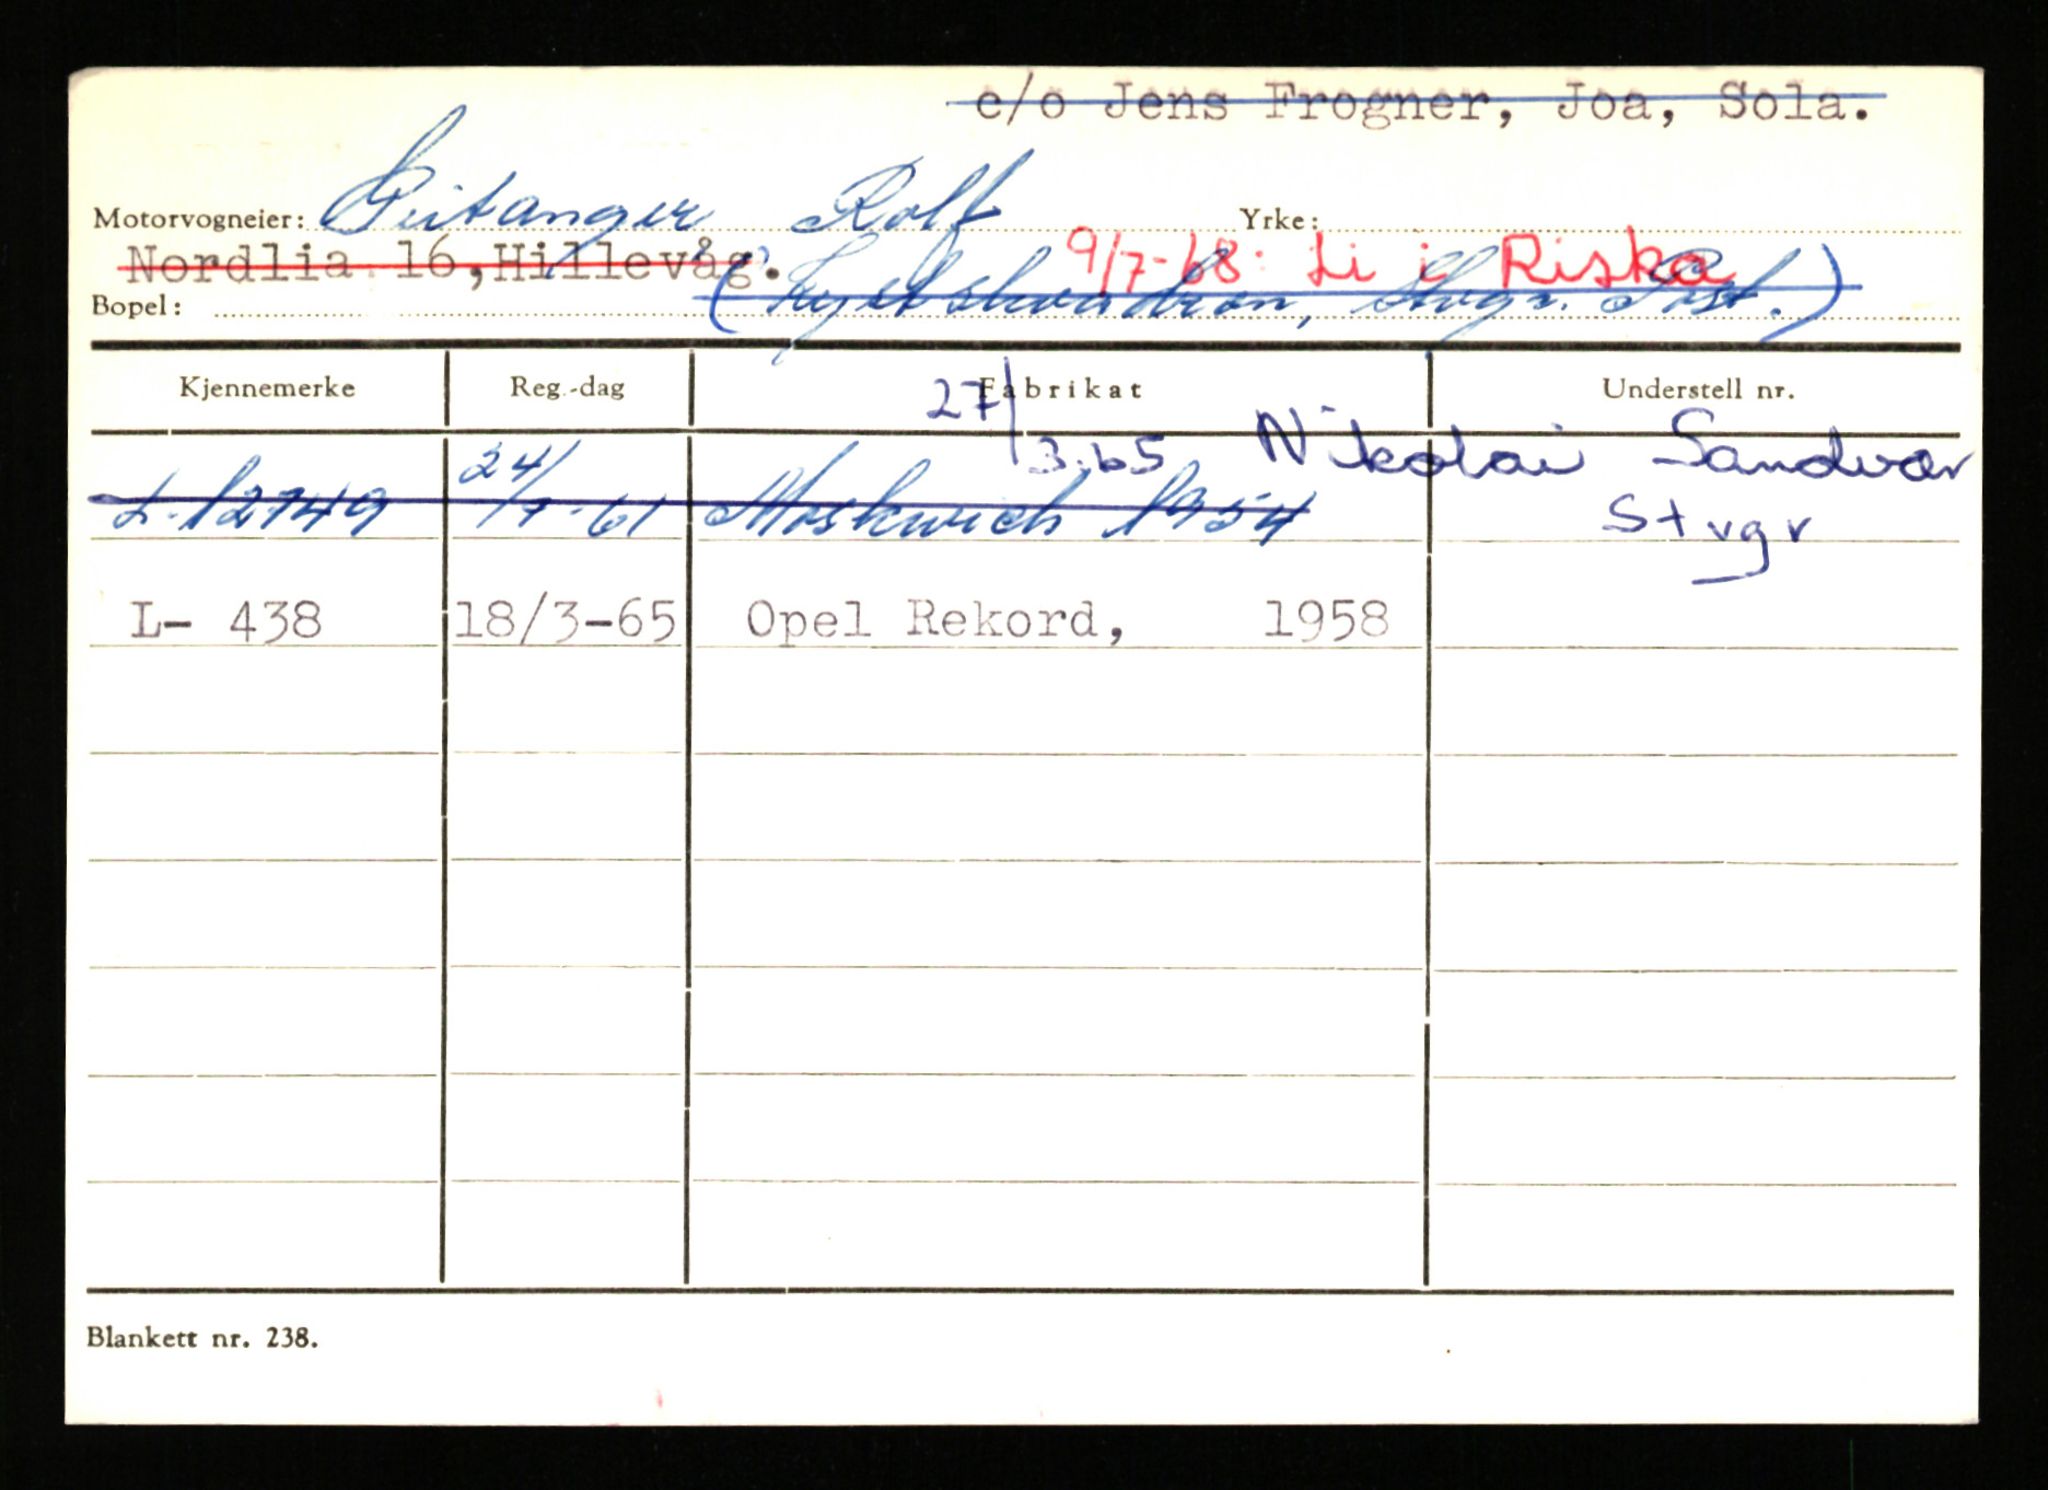 c/o Jens Frogner, Joa, Sola.
Motorvogneier: Geitanger Rolf Yrke:
Nordlia 16, Hillevåg. 9/7-68: Li i Riska
Bopel: (Kystskvadron, Stvgr. Post.)
Kjennemerke Reg.-dag Fabrikat Understell nr.
27/3.65 Nikolai Sandvær
L-12749 24/7-61 Moskwich 1954 Stvgr
L- 438 18/3-65 Opel Rekord, 1958
Blankett nr. 238.